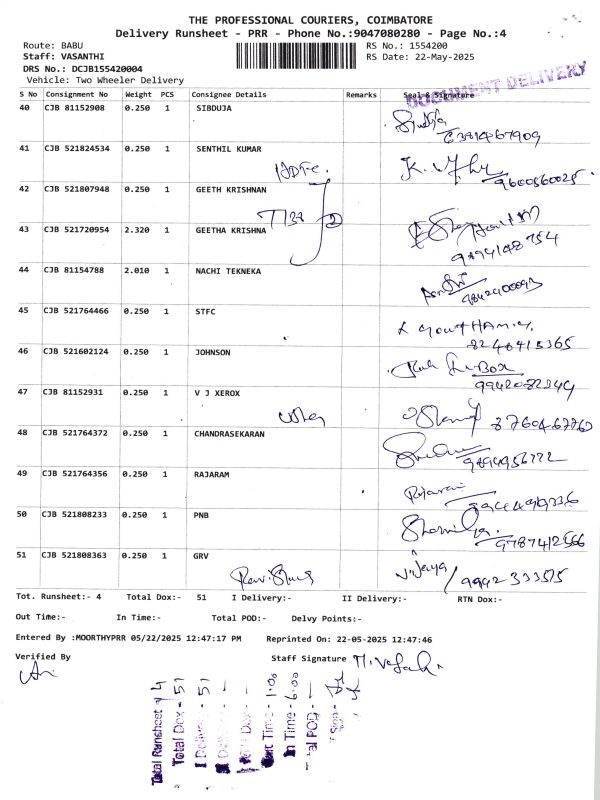 THE PROFESSIONAL COURIERS, COIMBATORE
Delivery Runsheet - PRR - Phone No.:9047080280 - Page No.:4
Route: BABU RS No.: 1554200
Staff: VASANTHI RS Date: 22-May-2025
DRS No.: DCJB155420004
Vehicle: Two Wheeler Delivery
DOCUMENT DELIVERY
S No Consignment No Weight PCS Consignee Details Remarks Seal & Signature
40 CJB 81152908 0.250 1 SIBDUJA
41 CJB 521824534 0.250 1 SENTHIL KUMAR
9600560025
HDFC
42 CJB 521807948 0.250 1 GEETH KRISHNAN
43 CJB 521720954 2.320 1 GEETHA KRISHNA
9894148754
44 CJB 81154788 2.010 1 NACHI TEKNEKA
9842400093
45 CJB 521764466 0.250 1 STFC
8248415365
46 CJB 521602124 0.250 1 JOHNSON
9942082349
47 CJB 81152931 0.250 1 V J XEROX
48 CJB 521764372 0.250 1 CHANDRASEKARAN
9894956722
49 CJB 521764356 0.250 1 RAJARAM
Rajaram
50 CJB 521808233 0.250 1 PNB
9787412566
51 CJB 521808363 0.250 1 GRV
Vijaya / 9992333515
Tot. Runsheet:- 4 Total Dox:- 51 I Delivery:- II Delivery:- RTN Dox:-
Out Time:- In Time:- Total POD:- Delvy Points:-
Entered By :MOORTHYPRR 05/22/2025 12:47:17 PM Reprinted On: 22-05-2025 12:47:46
Verified By Staff Signature
Total Runsheet 4
Total Dox - 51
In Time - 6:00